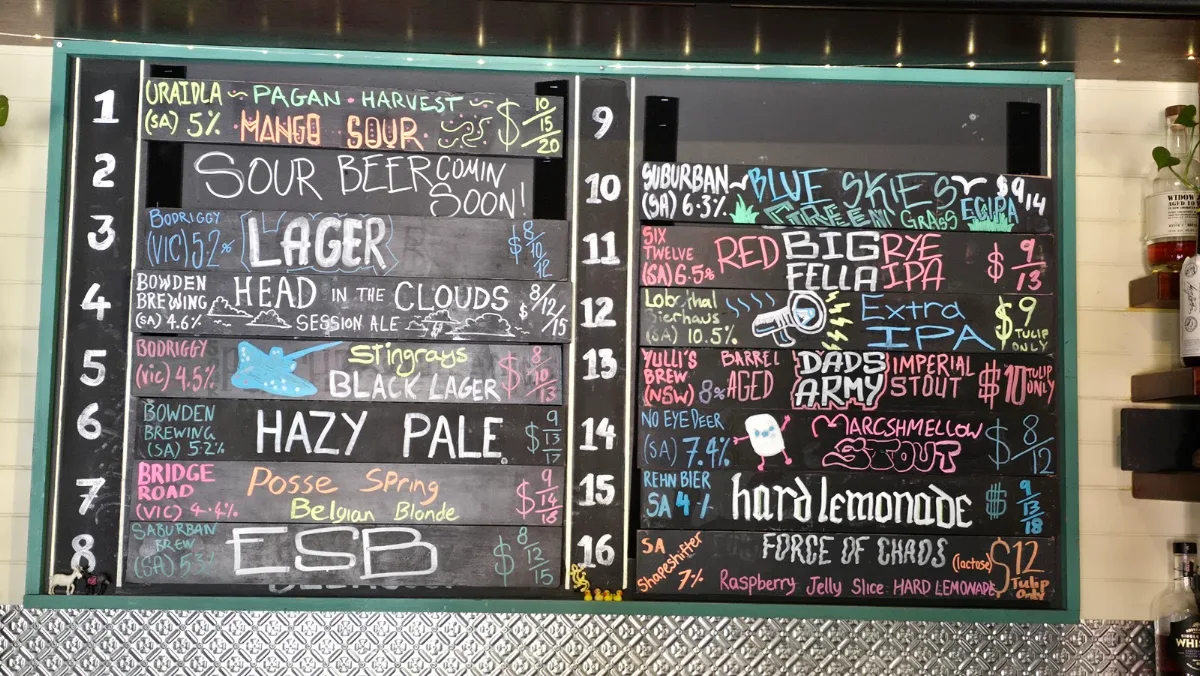 1
URAIDLA ~ PAGAN · HARVEST ~
(SA) 5% · MANGO SOUR ·
$ 10/15/20
2
SOUR BEER COMIN SOON!
3
BODRIGGY
(VIC) 5.2%
LAGER
$ 8/10/12
4
BOWDEN
BREWING
(SA) 4.6%
HEAD IN THE CLOUDS
SESSION ALE
$ 8/12/15
5
BODRIGGY
(Vic) 4.5%
Stingrays
BLACK LAGER
$ 8/10/13
6
BOWDEN
BREWING
(SA) 5.2%
HAZY PALE
$ 9/13/17
7
BRIDGE
ROAD
(VIC) 4.4%
Posse Spring
Belgian Blonde
$ 9/14/18
8
SABURBAN
BREW
(SA) 5.3%
ESB
$ 8/12/15
9
10
SUBURBAN
(SA) 6.3%
BLUE SKIES
GREEN GRASS
EWPA
$ 9/14
11
SIX
TWELVE
(SA) 6.5%
RED BIG RYE
FELLA IPA
$ 9/13
12
Lobethal
Bierhaus
(SA) 10.5%
Extra
IPA
$9
TULIP
ONLY
13
YULLI'S
BREW
(NSW) 8%
BARREL
AGED
DADS
ARMY
IMPERIAL
STOUT
$10 TULIP
ONLY
14
NO EYE DEER
(SA) 7.4%
MARCSHMELLOW
STOUT
$ 8/12
15
REHN BIER
SA 4%
hard lemonade
$ 9/13/18
16
SA
Shapeshifter
7%
FORCE OF CHAOS (lactose)
Raspberry Jelly Slice HARD LEMONADE
$12
Tulip
Only
WIDOW